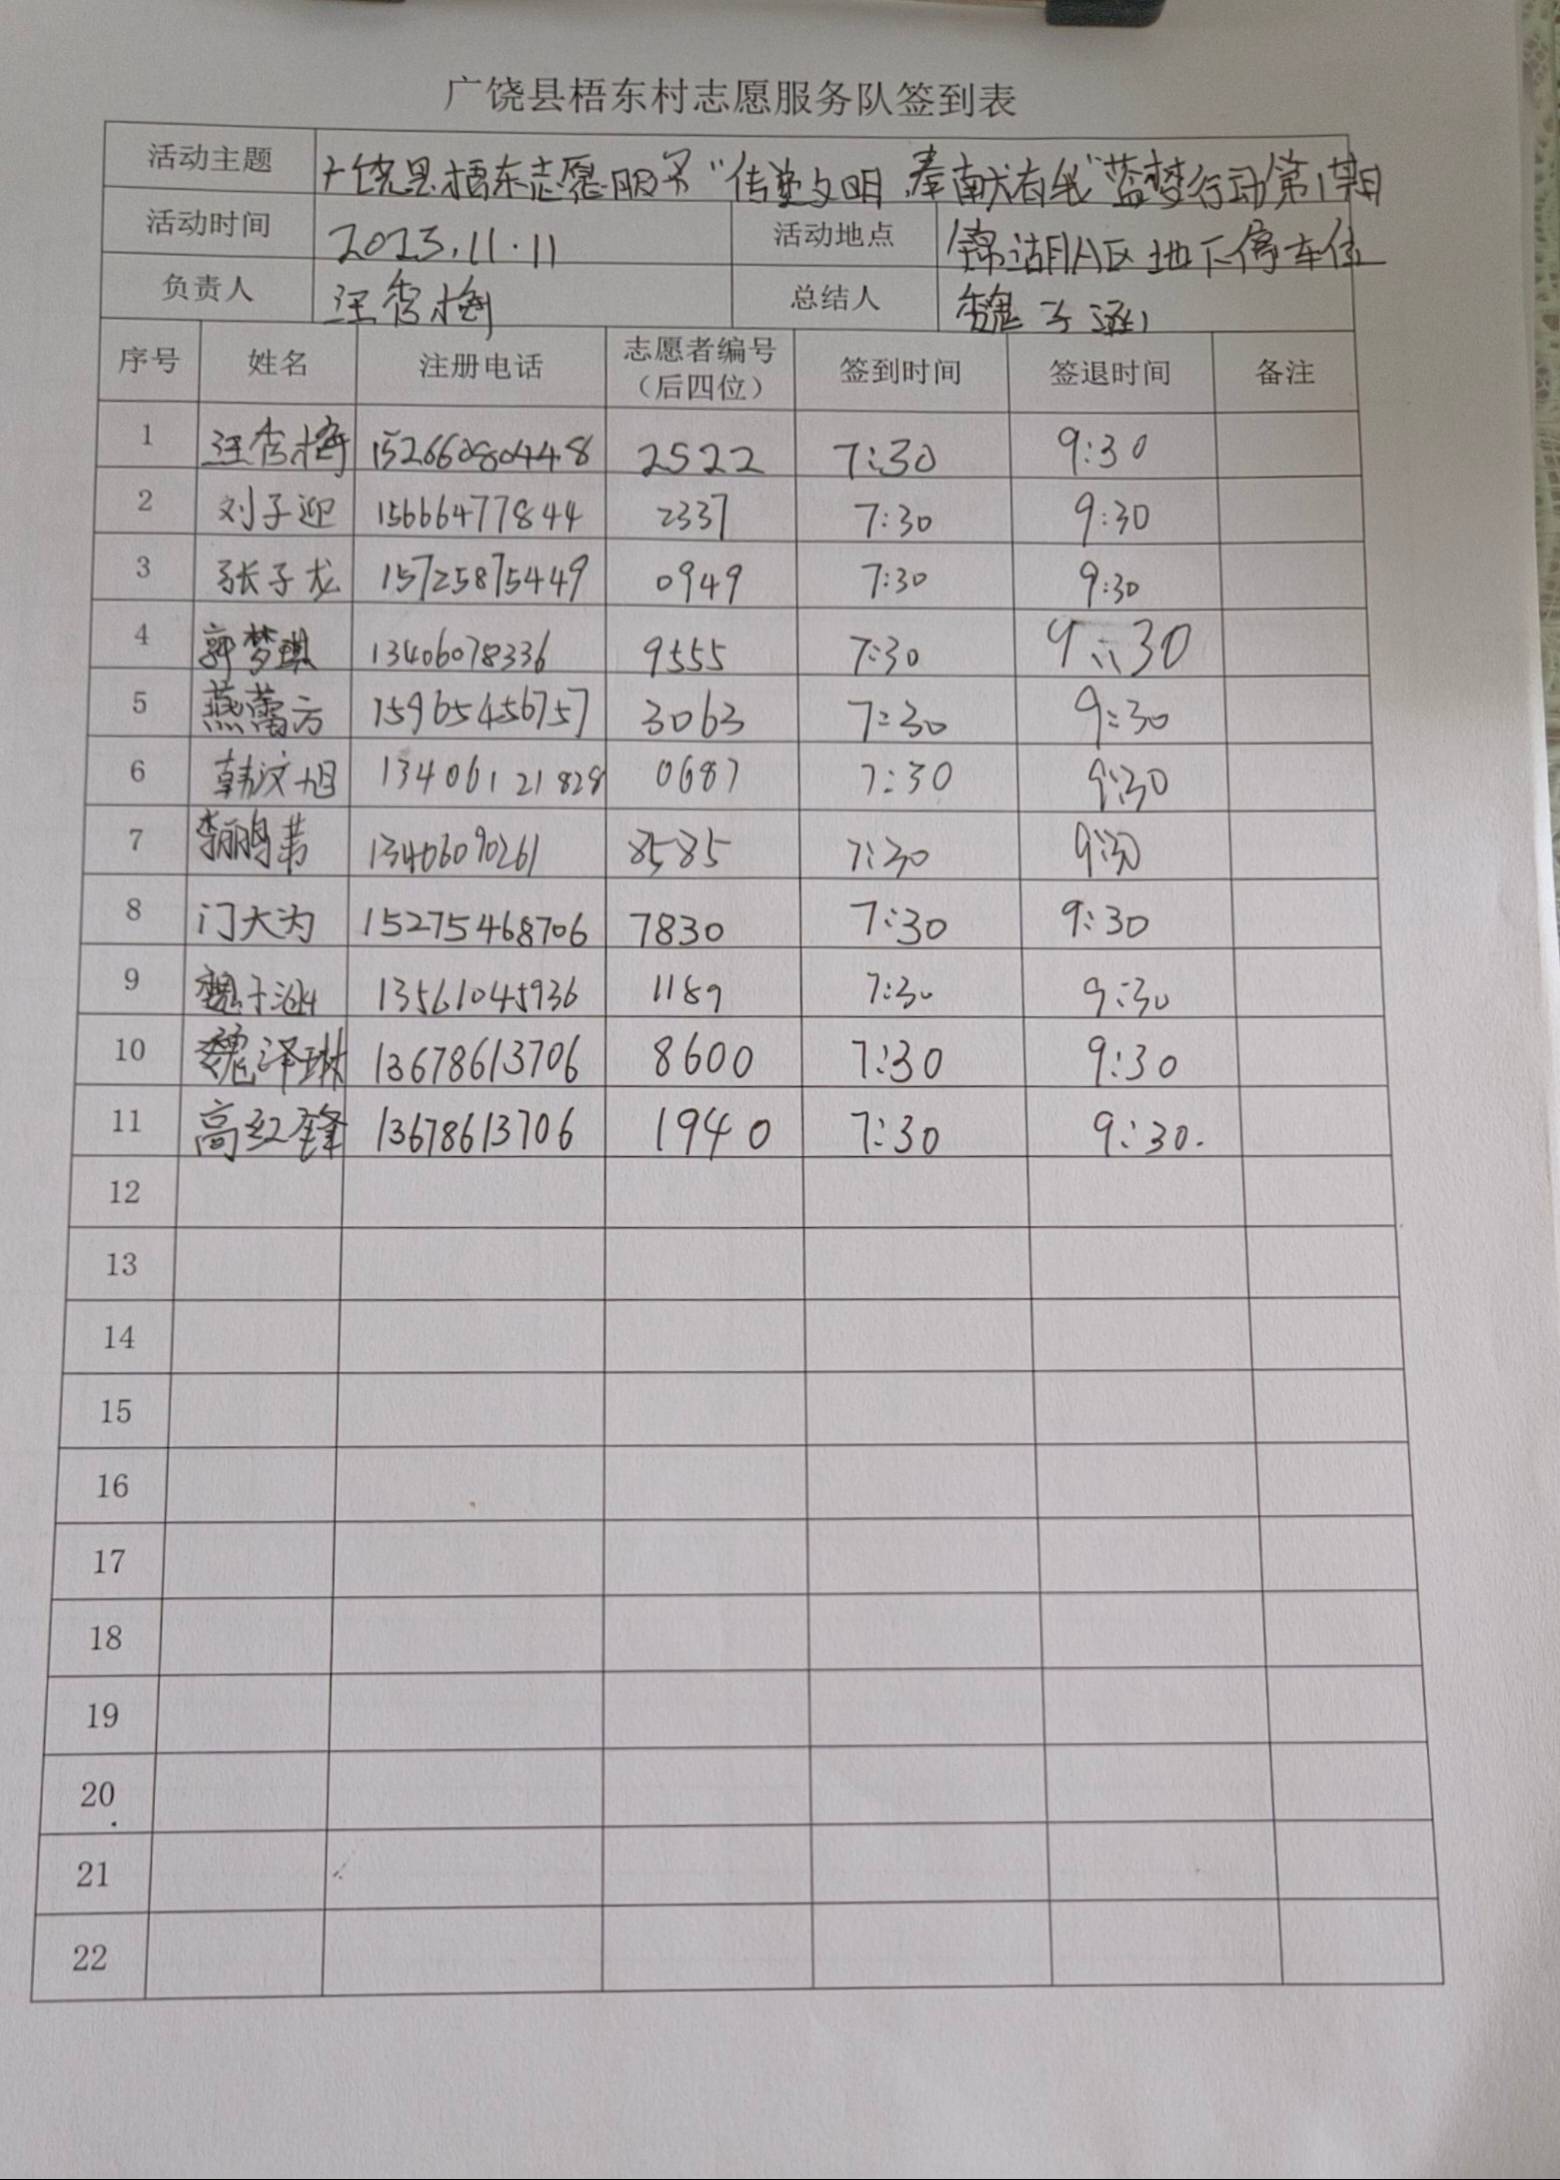 广饶县梧东村志愿服务队签到表
活动主题 广饶县梧东志愿服务“传递文明，奉献有我”蓝梦行动第1期
活动时间 2023.11.11 活动地点 锦湖A区地下停车位
负责人 汪秀梅 总结人 魏子涵
序号 姓名 注册电话 志愿者编号（后四位） 签到时间 签退时间 备注
1 汪秀梅 15266080448 2522 7:30 9:30
2 刘子迎 15666477844 2337 7:30 9:30
3 张子龙 15725875449 0949 7:30 9:30
4 郭梦琪 13406078336 9555 7:30 9:30
5 燕蕾方 15965456757 3063 7:30 9:30
6 韩汶旭 13406121828 0687 7:30 9:30
7 13406090261 8585 7:30 9:30
8 门大为 15275468706 7830 7:30 9:30
9 魏子涵 13561045936 1189 7:30 9:30
10 魏泽琳 13678613706 8600 7:30 9:30
11 高红锋 13678613706 1940 7:30 9:30.
12
13
14
15
16
17
18
19
20
21
22